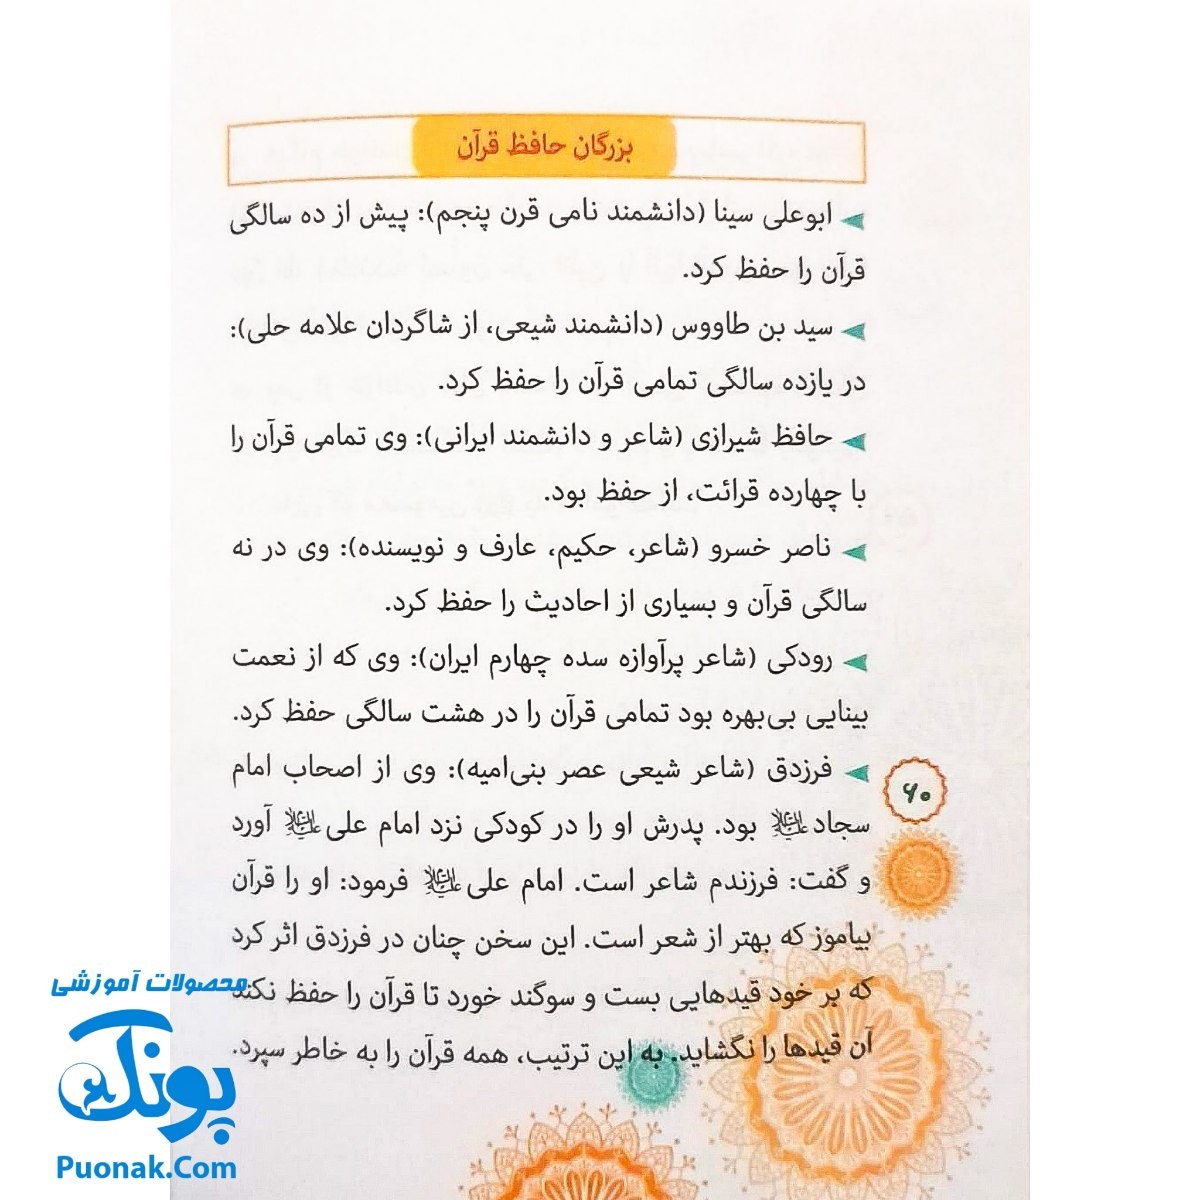 بزرگان حافظ قرآن
ابوعلی سینا (دانشمند نامی قرن پنجم): پیش از ده سالگی
قرآن را حفظ کرد.
سید بن طاووس (دانشمند شیعی، از شاگردان علامه حلی):
در یازده سالگی تمامی قرآن را حفظ کرد.
حافظ شیرازی (شاعر و دانشمند ایرانی): وی تمامی قرآن را
با چهارده قرائت، از حفظ بود.
ناصر خسرو (شاعر، حکیم، عارف و نویسنده): وی در نه
سالگی قرآن و بسیاری از احادیث را حفظ کرد.
رودکی (شاعر پرآوازه سده چهارم ایران): وی که از نعمت
بینایی بی‌بهره بود تمامی قرآن را در هشت سالگی حفظ کرد.
فرزدق (شاعر شیعی عصر بنی‌امیه): وی از اصحاب امام
سجاد علیه‌السلام بود. پدرش او را در کودکی نزد امام علی علیه‌السلام آورد
و گفت: فرزندم شاعر است. امام علی علیه‌السلام فرمود: او را قرآن
بیاموز که بهتر از شعر است. این سخن چنان در فرزدق اثر کرد
که بر خود قیدهایی بست و سوگند خورد تا قرآن را حفظ نکند
آن قیدها را نگشاید. به این ترتیب، همه قرآن را به خاطر سپرد.
۶۰
محصولات آموزشی
پونک
Puonak.Com